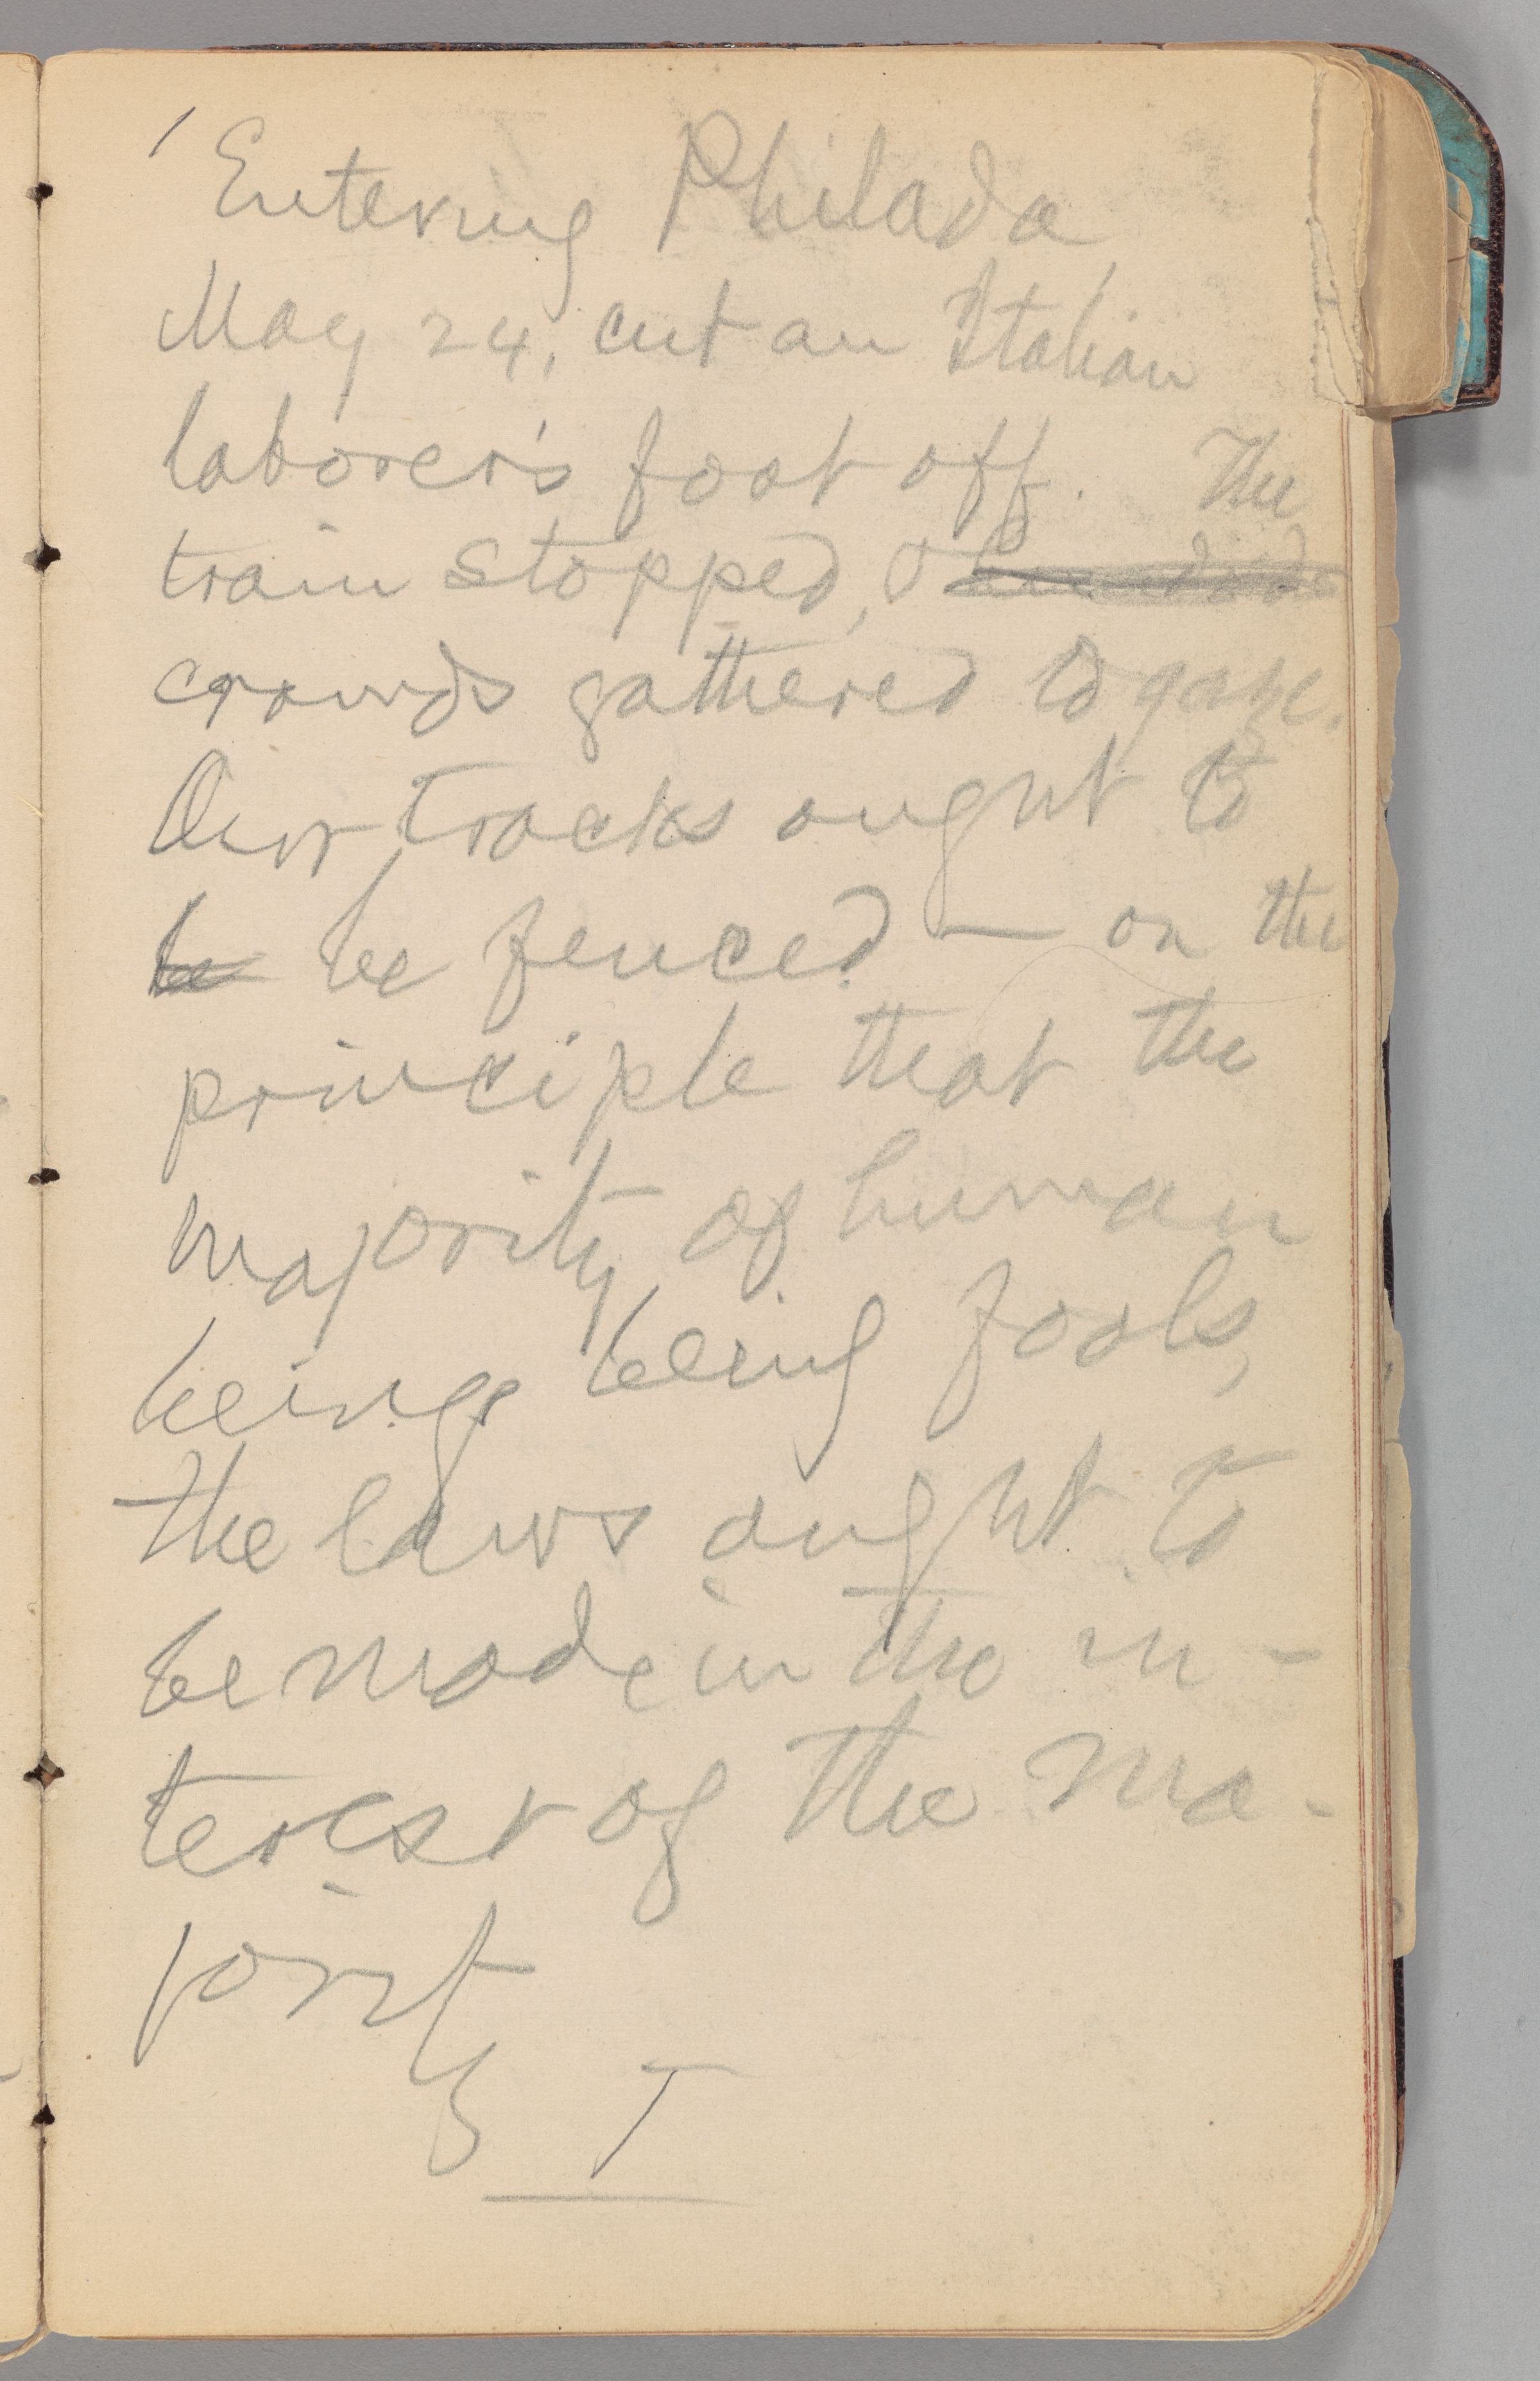 Entering Philada,
May 24, cut an Italian
laborer's foot off. The
train stopped, & hundreds
crowds gathered to gaze.
Our tracks ought to
be be fenced — on the
principle that the
majority of human
beings being fools,
the laws ought to
be made in the in-
terest of the ma-
jority